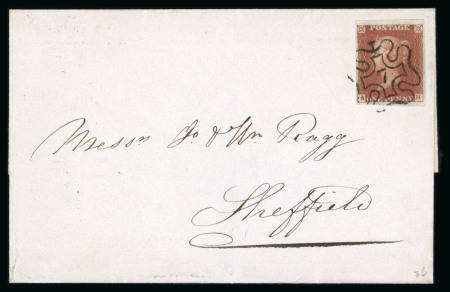 POSTAGE
1
ONE PENNY
Messrs Jo. & Wm Ragg
Sheffield
36